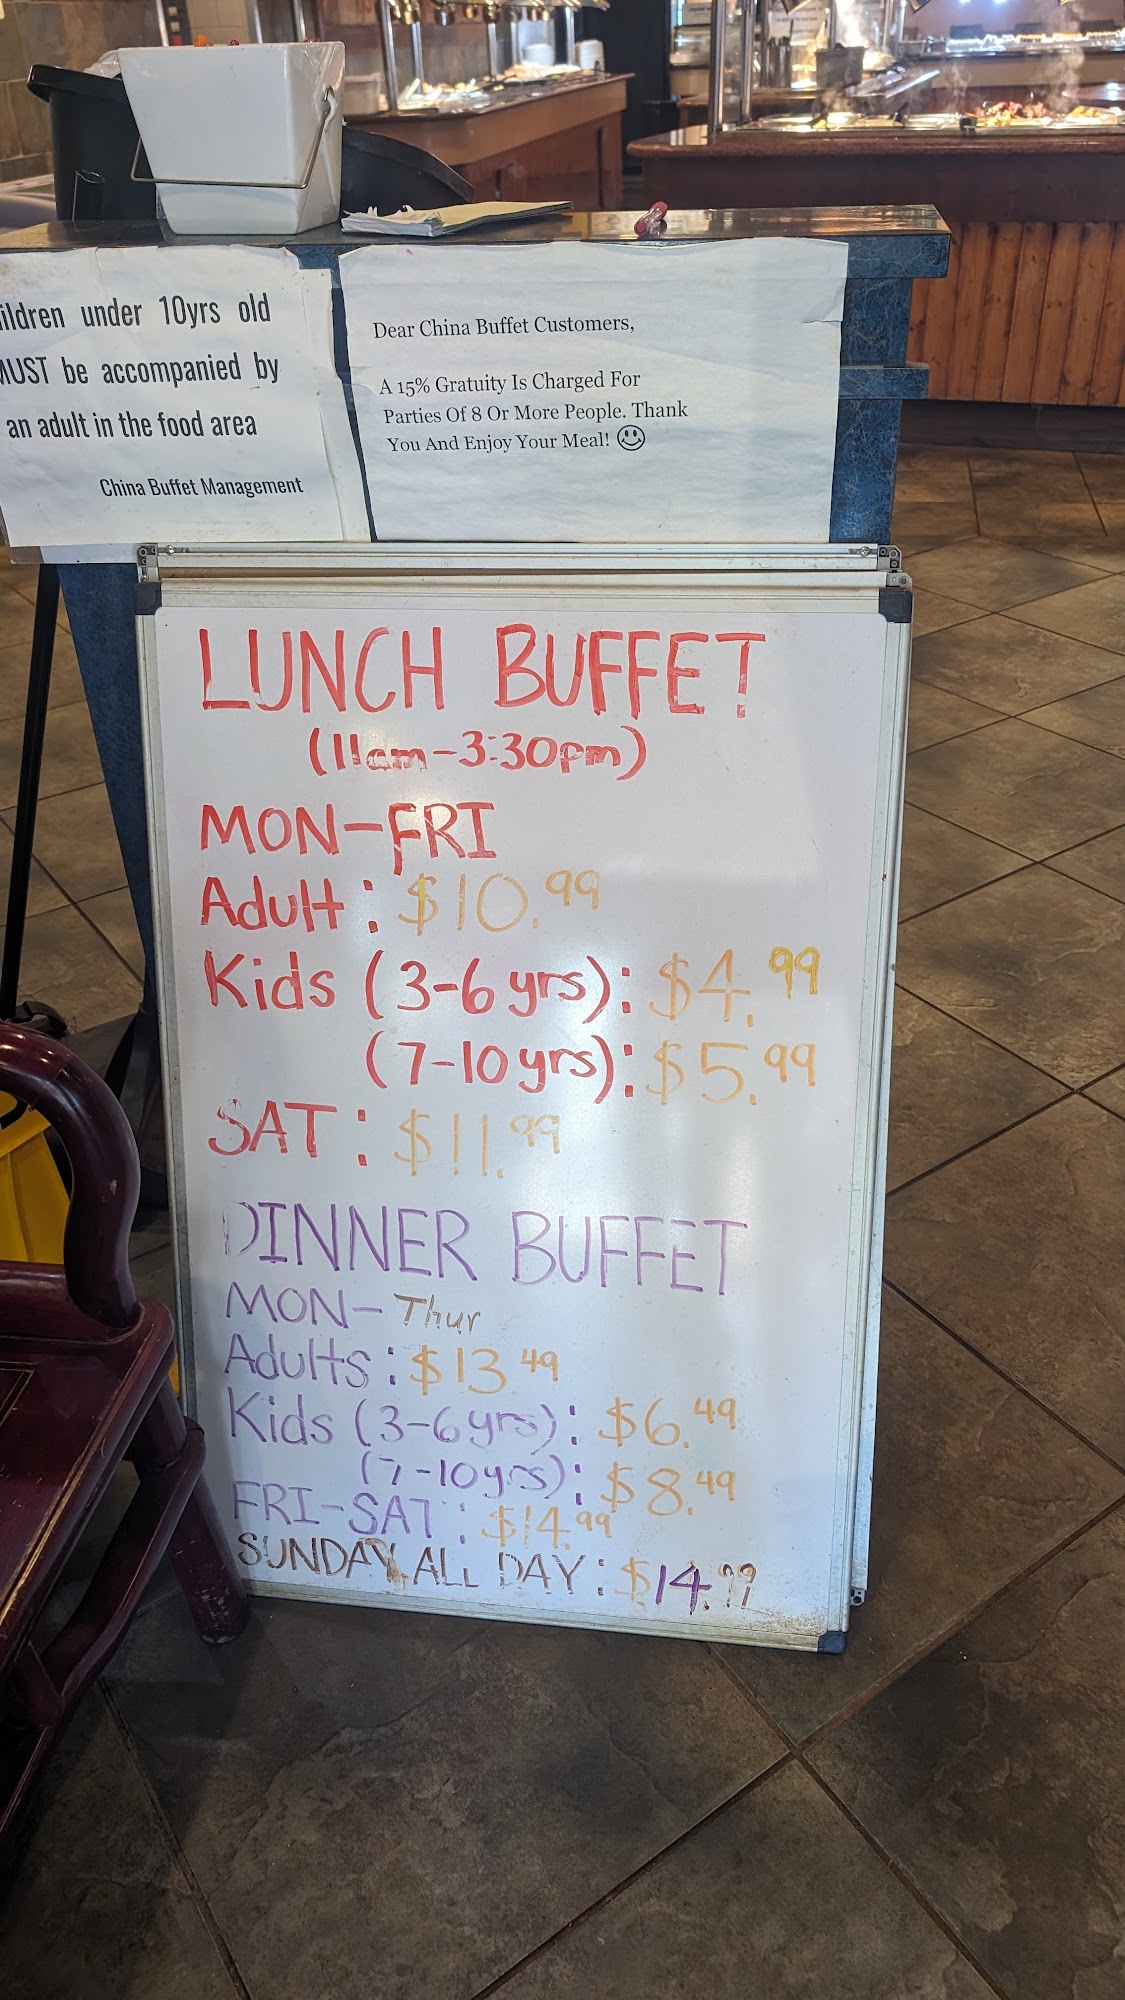 ildren under 10yrs old
MUST be accompanied by
an adult in the food area
China Buffet Management
Dear China Buffet Customers,
A 15% Gratuity Is Charged For
Parties Of 8 Or More People. Thank
You And Enjoy Your Meal! ☺
LUNCH BUFFET
(11am-3:30pm)
MON-FRI
Adult: $10.99
Kids (3-6 yrs): $4.99
(7-10 yrs): $5.99
SAT: $11.99
DINNER BUFFET
MON-Thur
Adults: $13 49
Kids (3-6 yrs): $6.49
(7-10 yrs): $8.49
FRI-SAT: $14.99
SUNDAY ALL DAY: $14.99